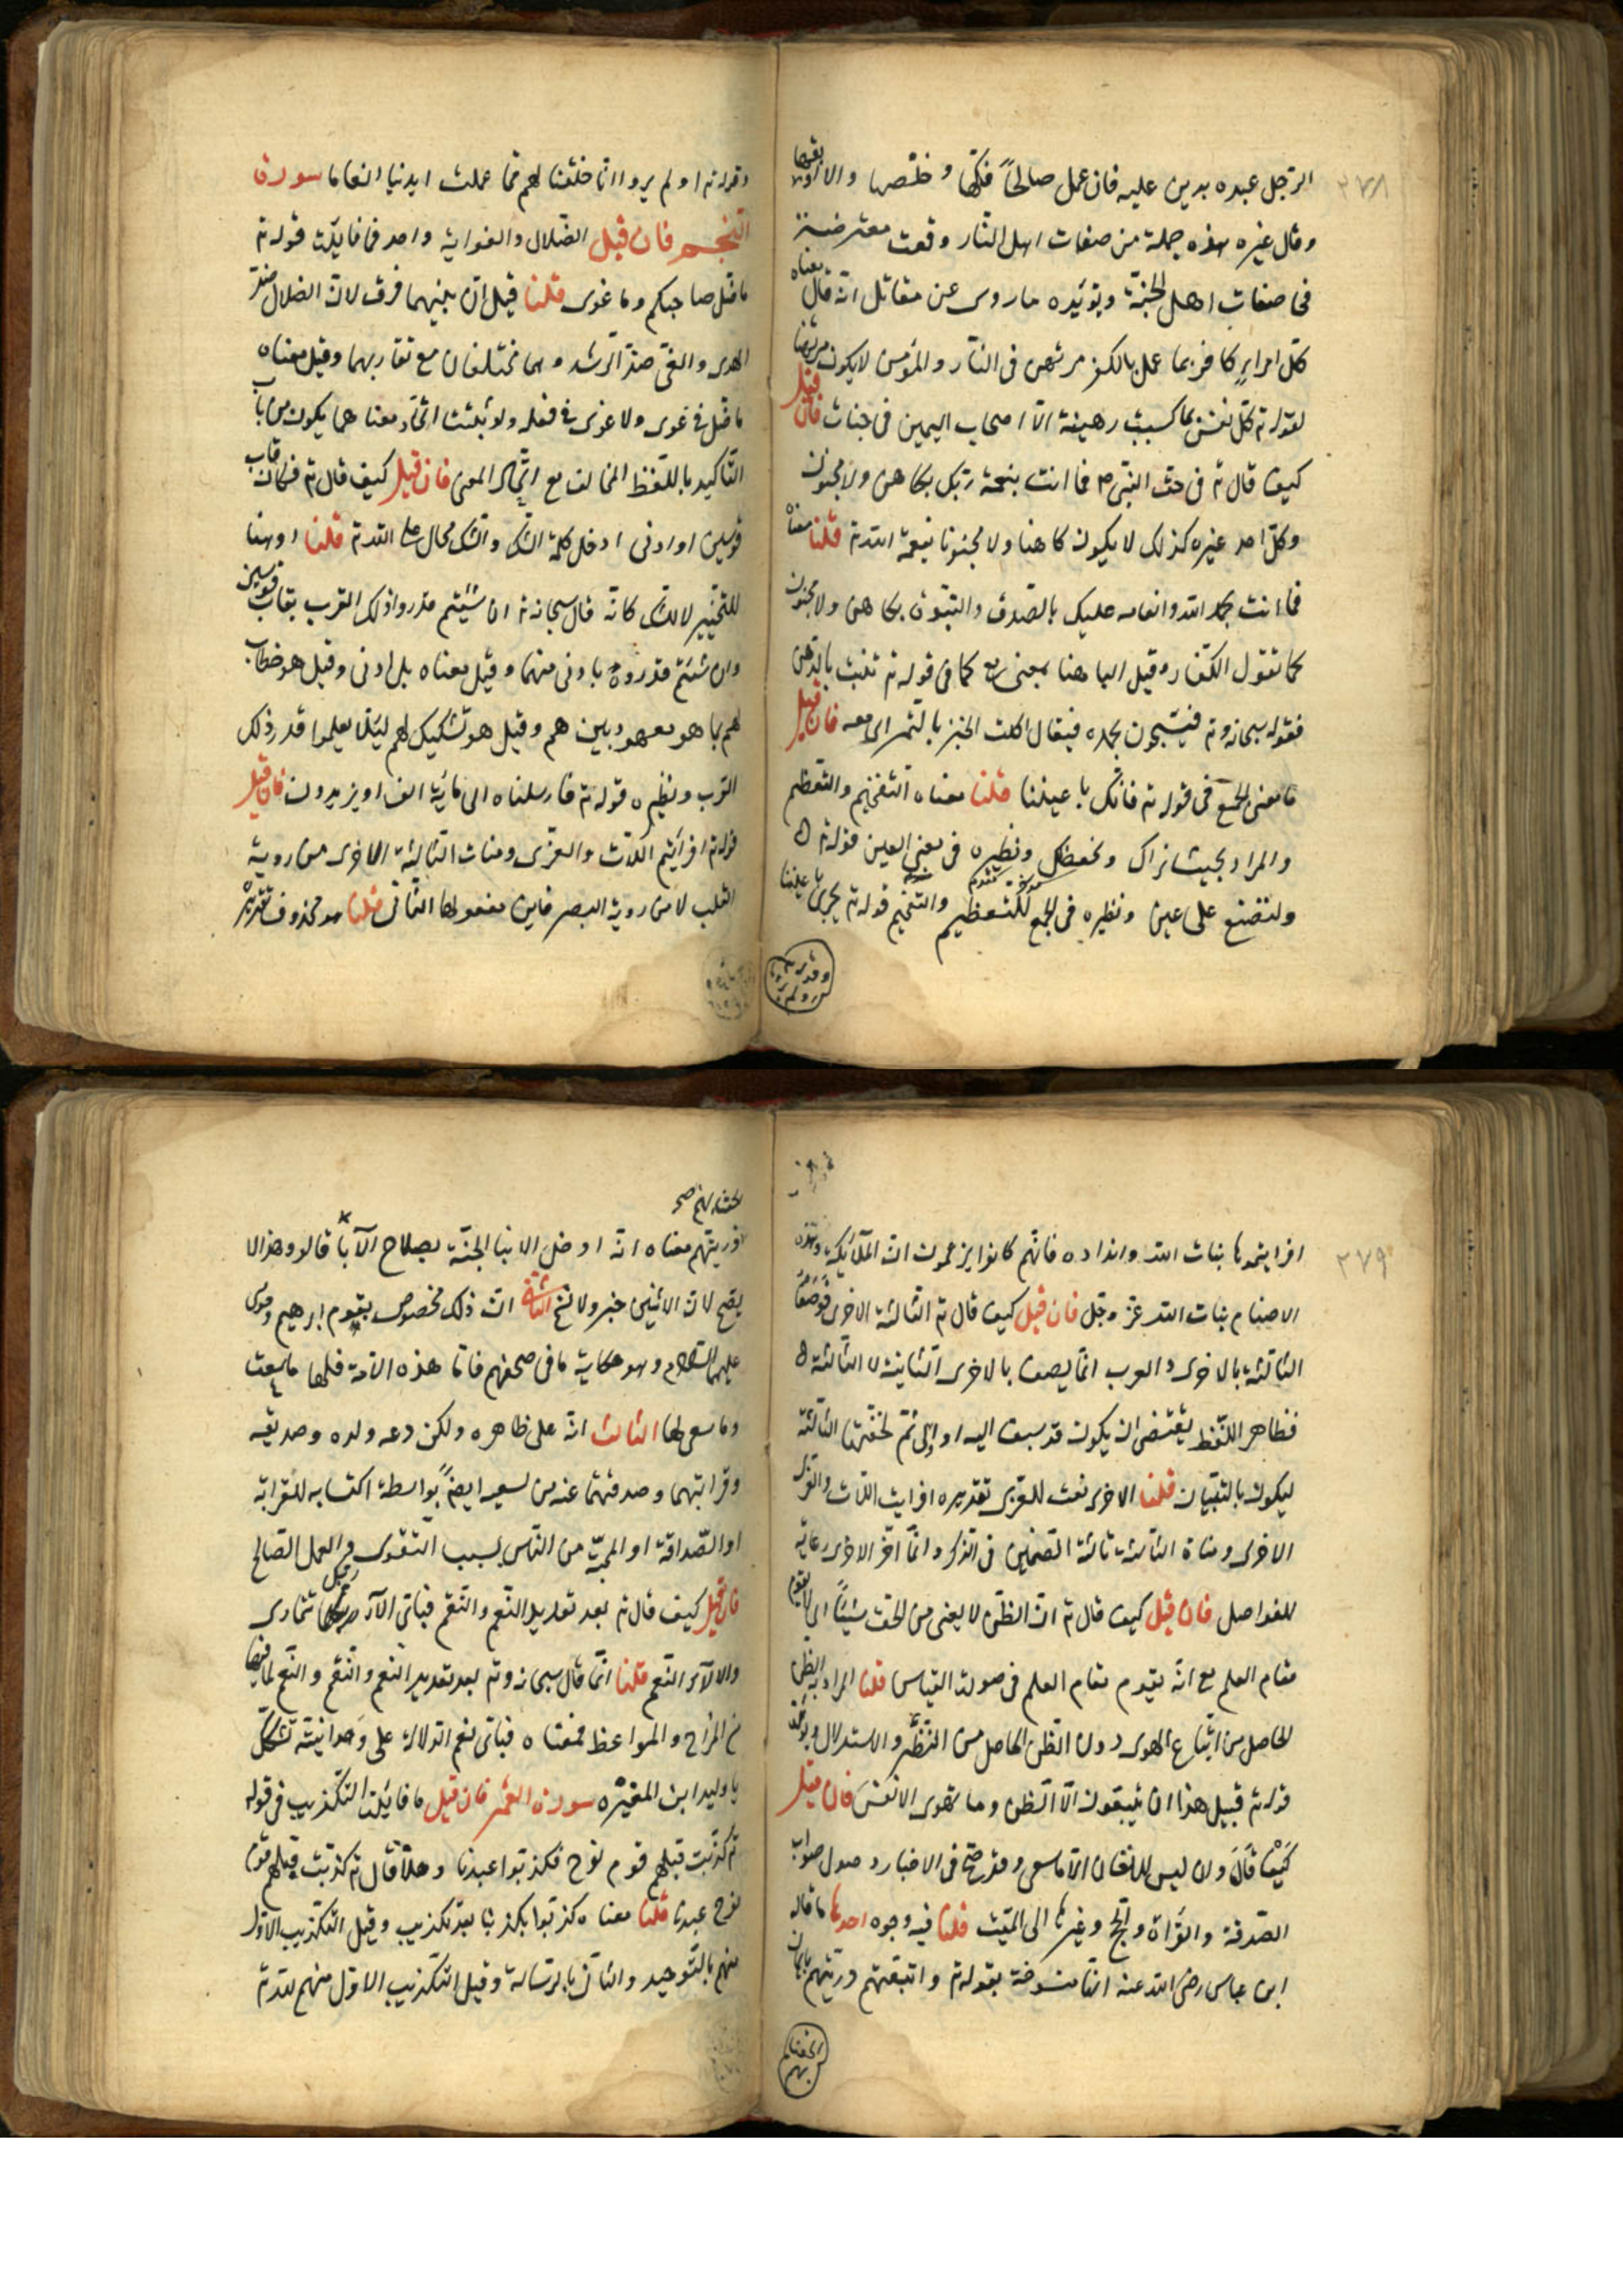 ٣٧٨
الرجل عبده بدين عليه فان عمل صالحًا فكّها وخلّصها والا اوبقها
وقال غيره هذه جملة من صفات اهل النّار وقعت معترضة
فى صفات اهل الجنّة ويؤيّده ما روى عن مقاتل انّه قال معناه
كلّ امرء كافر بما عمل بالكفر مرتهن فى النّار والمؤمن لا يكون مرتهنا
لقوله تم كلّ نفس بما كسبت رهينة الّا اصحاب اليمين فى جنات فان قيل
كيف قال تم فى حق النّبى م فما انت بنعمة ربّك بكاهن ولا مجنون
وكلّ احد غيره كذلك لا يكون كاهنا ولا مجنونا بنعمة الله تم قلنا معناه
فما انت بحمد الله وانعامه عليك بالصّدق والنبّوة بكاهن ولا مجنون
كما تقول الكفّار وقيل الباء هنا بمعنى مع كما فى قوله تم تنبت بالدّهن
فقوله سبحانه وتم فتسبّحون بحمده فيقال اكلت الخبز بالتّمر اى معه فان قيل
ما معنى الجمع فى قوله تم فانّك باعيننا قلنا معناه التّفخيم والتّعظيم
والمراد بحيث نراك ونحفظك ونظيره فى معنى العين قوله تم
ولتصنع على عينى ونظيره فى الجمع للتّعظيم والتّفخيم قوله تم تجرى باعيننا
وقوله تم اولم يروا انّا خلقنا لهم ممّا عملت ايدينا انعاما سورة
النّجم فان قيل الضّلال والغواية واحد فما فايدة قوله تم
ما ضلّ صاحبكم وما غوى قلنا قيل انّ بينهما فرق لان الضلال ضدّ
الهدى والغىّ ضدّ الرّشد وهما مختلفان مع تقاربهما وقيل معناه
ما ضلّ فى قوله ولا غوى فى فعله ولو ثبت اتّحاد معناهما يكون من باب
التّاكيد باللّفظ المخالف مع اتّحاد المعنى فان قيل كيف قال تم فكان قاب
قوسين او ادنى ادخل كلمة الشّك والشّك محال على الله تم قلنا او هنا
للتّخيير لا للشّك كانّه قال سبحانه تم ان شئتم قدّروا ذلك القرب بقاب قوسين
وان شئتم قدّروه بادنى منهما وقيل معناه بل ادنى وقيل هو خطاب
لهم بما هو معهود بينهم وقيل هو تشكيك لهم ليلّا يعلموا قدر ذلك
القرب ونظيره قوله تم فارسلناه الى ماية الف او يزيدون فان قيل
قوله تم افرأيتم اللّات والعزّى ومناة الثّالثة الاخرى من روية
القلب لا من روية البصر فاين مفعولها الثّانى قلنا هو محذوف تقديره
٣٧٩
افرايتموها بنات الله وانداده فانّهم كانوا يزعمون انّ الملائكة وهذه
الاصنام بنات الله عزّ وجل فان قيل كيف قال تم الثّالثة الاخرى فوصف
الثّالثة بالاخرى والعرب انّما يصف بالاخرى الثّانية لا الثّالثة
فظاهر اللّفظ يقتضى ان يكون قد سبقت اليه اوّلى ثمّ لحقتها الثّالثة
ليكون ثالثتان قلنا الاخرى نعت للعزّى تقديره افرايت اللّات والعزّى
الاخرى ومناة الثّالثة ثالثة الصّنمين فى الذّكر وانّما اخّر الاخرى رعاية
للفواصل فان قيل كيف قال تم انّ الظّن لا يغنى من الحقّ شيئًا اى لا يقوم
مقام العلم مع انّه يقوم مقام العلم فى صورة القياس قلنا المراد به الظن
الحاصل من اتّباع الهوى دون الظّن الحاصل من النّظر والاستدلال ويؤيّده
قوله تم قبيل هذا ان يتّبعون الّا الظّن وما تهوى الانفس فان قيل
كيف قال وان ليس للانسان الّا ما سعى وقد صحّ فى الاخبار وصول ثواب
الصّدقة والقراة والحج وغيرها الى الميّت قلنا فيه وجوه احدها ما قاله
ابن عباس رضى الله عنه انها منسوخة بقوله تم واتبعتهم ذريّتهم بايمان
الحقنا بهم
الحقنا بهم صح
ذريّتهم معناه انّه ادخل الابناء الجنّة بصلاح الآباء قالوا وهذا لا
يصحّ لان الاثنين خبر ولا نسخ الثانى انّ ذلك مخصوص بقوم ابرهيم وموسى
عليهما السّلام وهو حكاية ما فى صحفهم فامّا هذه الامّة فلها ما سعت
وما سعى لها الثالث انّه على ظاهره ولكن دعه ولده وصديقه
وقرابتهما وصدقتهما عنه من سعيه ايضًا بواسطة اكتسابه للقرابة
او الصّداقة او المحبّة من النّاس بسبب التّقوى والعمل الصّالح
فان قيل كيف قال تم بعد تعديد النّعم والنّقم فباىّ الآء ربّك تتمارى
والالآء النّعم قلنا انّما قال سبحانه وتم بعد تعديد النعم والنّقم والنّعم لما فيها
من الزّاجر والمواعظ فمعناه فباىّ نعم الدّلالة على وحدانيّته تشكّ
يا وليد ابن المغيره سورة القمر فان قيل ما فايدة التّكذيب فى قوله
تم كذّبت قبلهم قوم نوح فكذّبوا عبدنا وهلّا قال تم كذبت قبلهم قوم
نوح عبدنا قلنا معناه كذّبوا تكذيبا بعد تكذيب وقيل التّكذيب الاوّل
منهم بالتّوحيد والثانى بالرّسالة وقيل التّكذيب الاوّل منهم لله تم